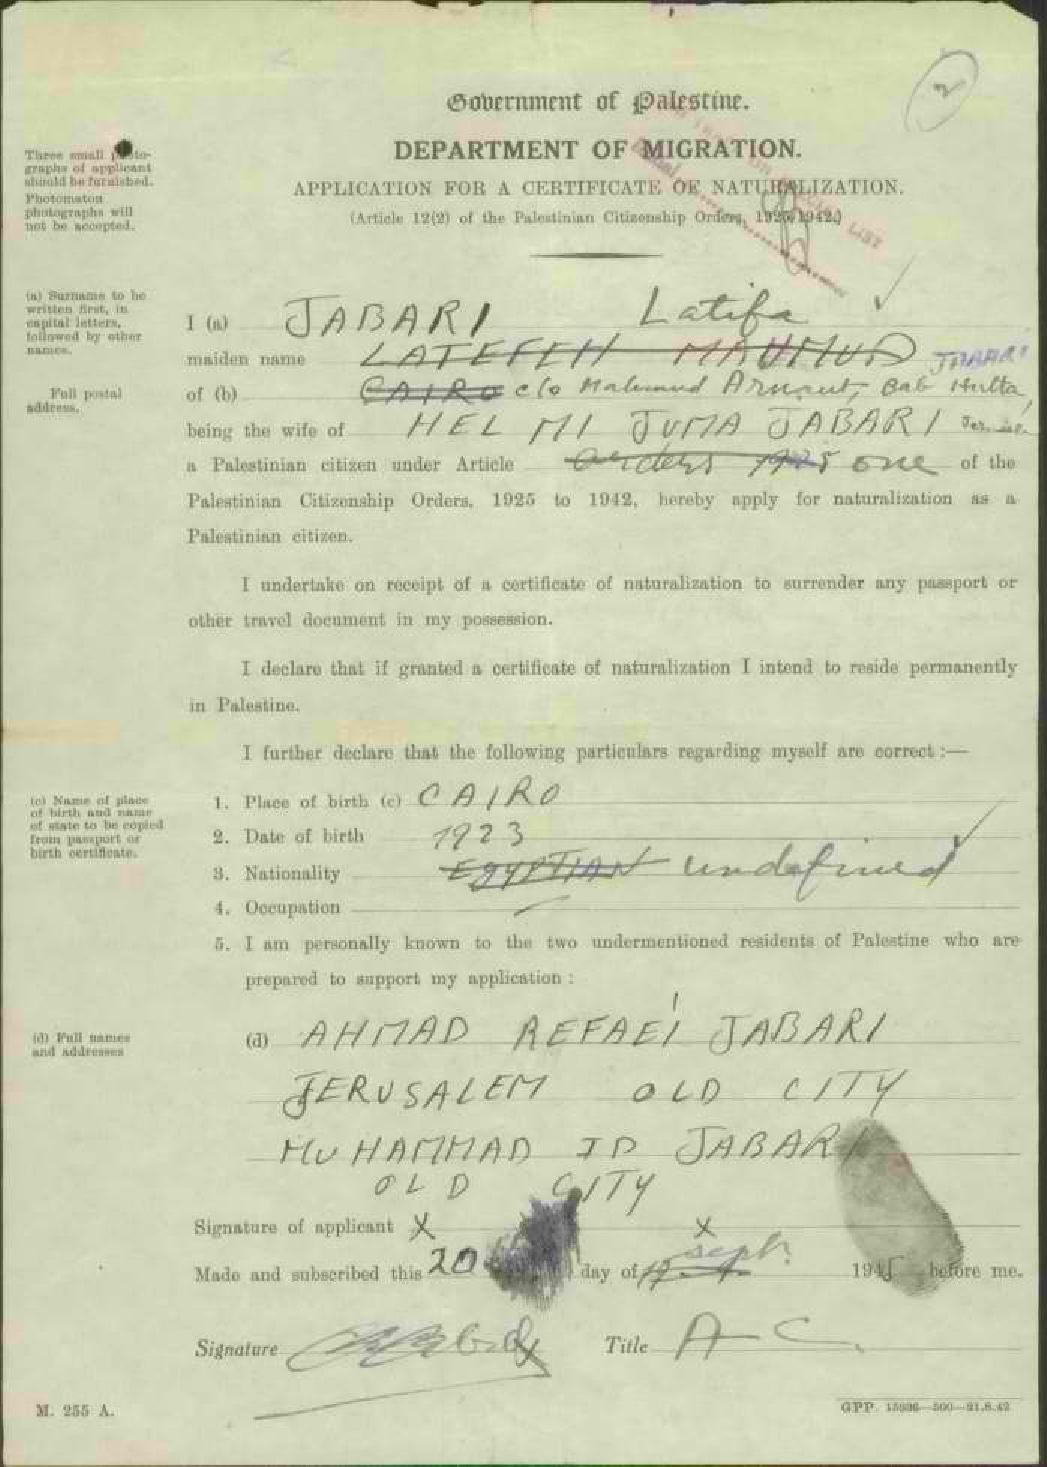 2
Government of Palestine.
DEPARTMENT OF MIGRATION.
APPLICATION FOR A CERTIFICATE OF NATURALIZATION.
(Article 12(2) of the Palestinian Citizenship Orders, 1925/1942.)
LIST
Three small photo-
graphs of applicant
should be furnished.
Photomaton
photographs will
not be accepted.
(a) Surname to be
written first, in
capital letters,
followed by other
names.
I (a) JABARI Latifa
maiden name LATEFEH MAHMUD JABARI
Full postal
address.
of (b) CAIRO c/o Mahmud Arnaut, Bab Hutta,
being the wife of HELMI JUMA JABARI
a Palestinian citizen under Article orders 1925 one of the
Palestinian Citizenship Orders, 1925 to 1942, hereby apply for naturalization as a
Palestinian citizen.
I undertake on receipt of a certificate of naturalization to surrender any passport or
other travel document in my possession.
I declare that if granted a certificate of naturalization I intend to reside permanently
in Palestine.
I further declare that the following particulars regarding myself are correct :—
(c) Name of place
of birth and name
of state to be copied
from passport or
birth certificate.
1. Place of birth (c) CAIRO
2. Date of birth 1923
3. Nationality EGYPTIAN undefined
4. Occupation
5. I am personally known to the two undermentioned residents of Palestine who are
prepared to support my application :
(d) Full names
and addresses
(d) AHMAD REFAEI JABARI
JERUSALEM OLD CITY
MUHAMMAD ID JABARI
OLD CITY
Signature of applicant X X
Made and subscribed this 20 day of sept. 1945 before me.
Signature Title A C.
M. 255 A.
GPP. 15036—500—21.8.42